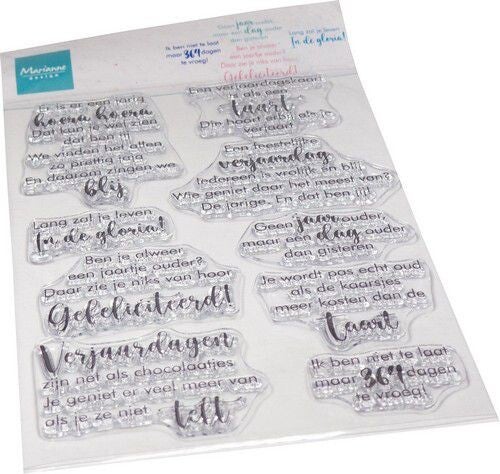 Marianne
DESIGN
Ik ben niet te laat
maar 364 dagen
te vroeg!
Geen jaar ouder
maar een dag ouder
dan gisteren
Ben je alweer
een jaartje ouder?
Daar zie je niks van hoor
Gefeliciteerd!
Lang zal je leven
In de gloria!
Er is er een jarig
hoera hoera
Dat kan je wel zien
dat ben jij!
We vinden het allen
zo prettig
En daarom zingen we
blij
Lang zal je leven
In de gloria!
Ben je alweer
een jaartje ouder?
Daar zie je niks van hoor
Gefeliciteerd!
Verjaardagen
zijn net als chocolaatjes
Je geniet er veel meer van
als je ze niet
telt
Een verjaardagskaart
is als een
taart
Die hoort erbij als je
verjaart
Een feestelijke
verjaardag
Iedereen is vrolijk en blij
Wie geniet daar het meest van?
De jarige. En dat ben jij!
Geen jaar ouder
maar een dag ouder
dan gisteren
Je wordt pas echt oud
als de kaarsjes
meer kosten dan de
taart
Ik ben niet te laat
maar 364 dagen
te vroeg!